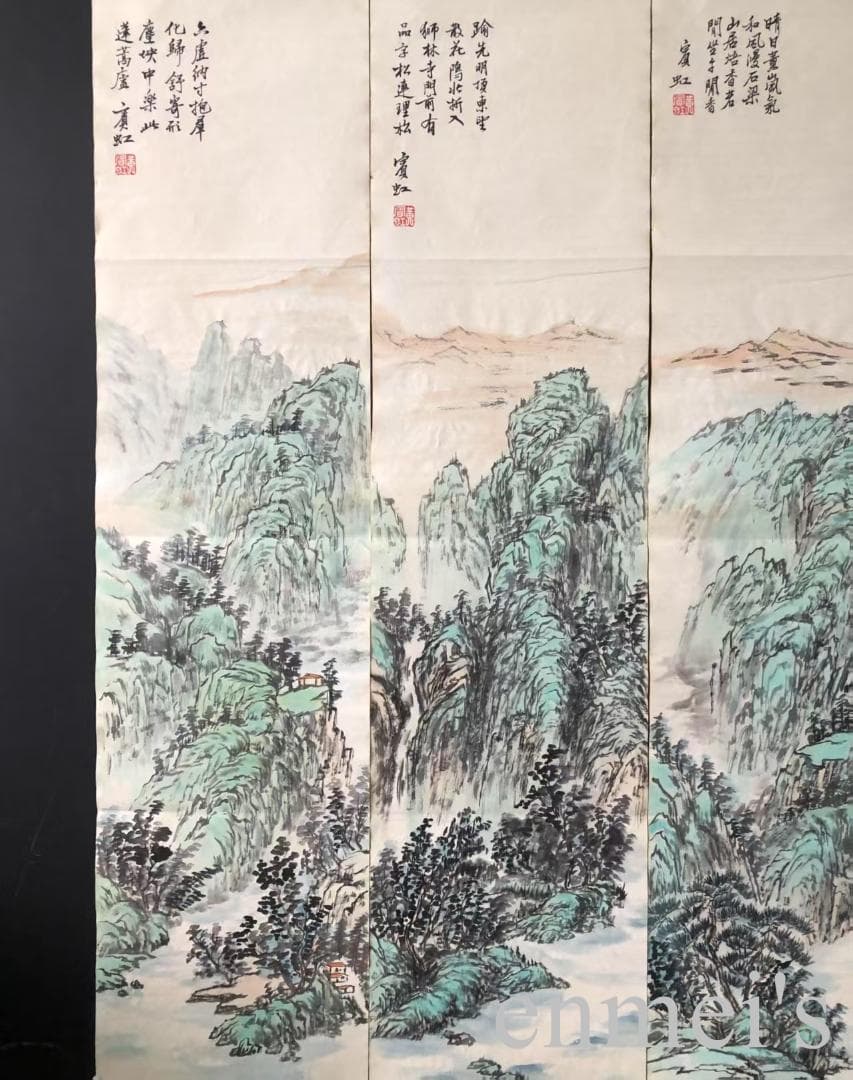 晴日薰嵐氣
和風漫石梁
山居焙香茗
閒坐午聞香
賓虹
踰光明頂東望
散花隝北折入
獅林寺門前有
品字松連理松
賓虹
六虛納寸抱羣
化歸舒寄形
塵埃中樂此
蓬蒿廬
賓虹
enmei's